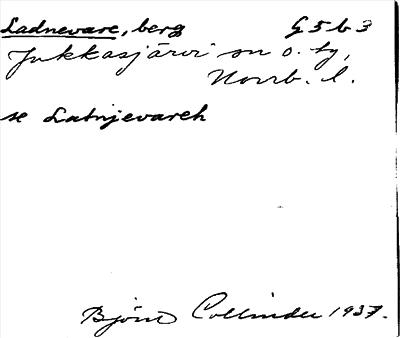 Ladnevare, berg G5b3
Jukkasjärvi sn o. by,
Norrb. l.
se Latnjevareh
Björn Collinder 1937.